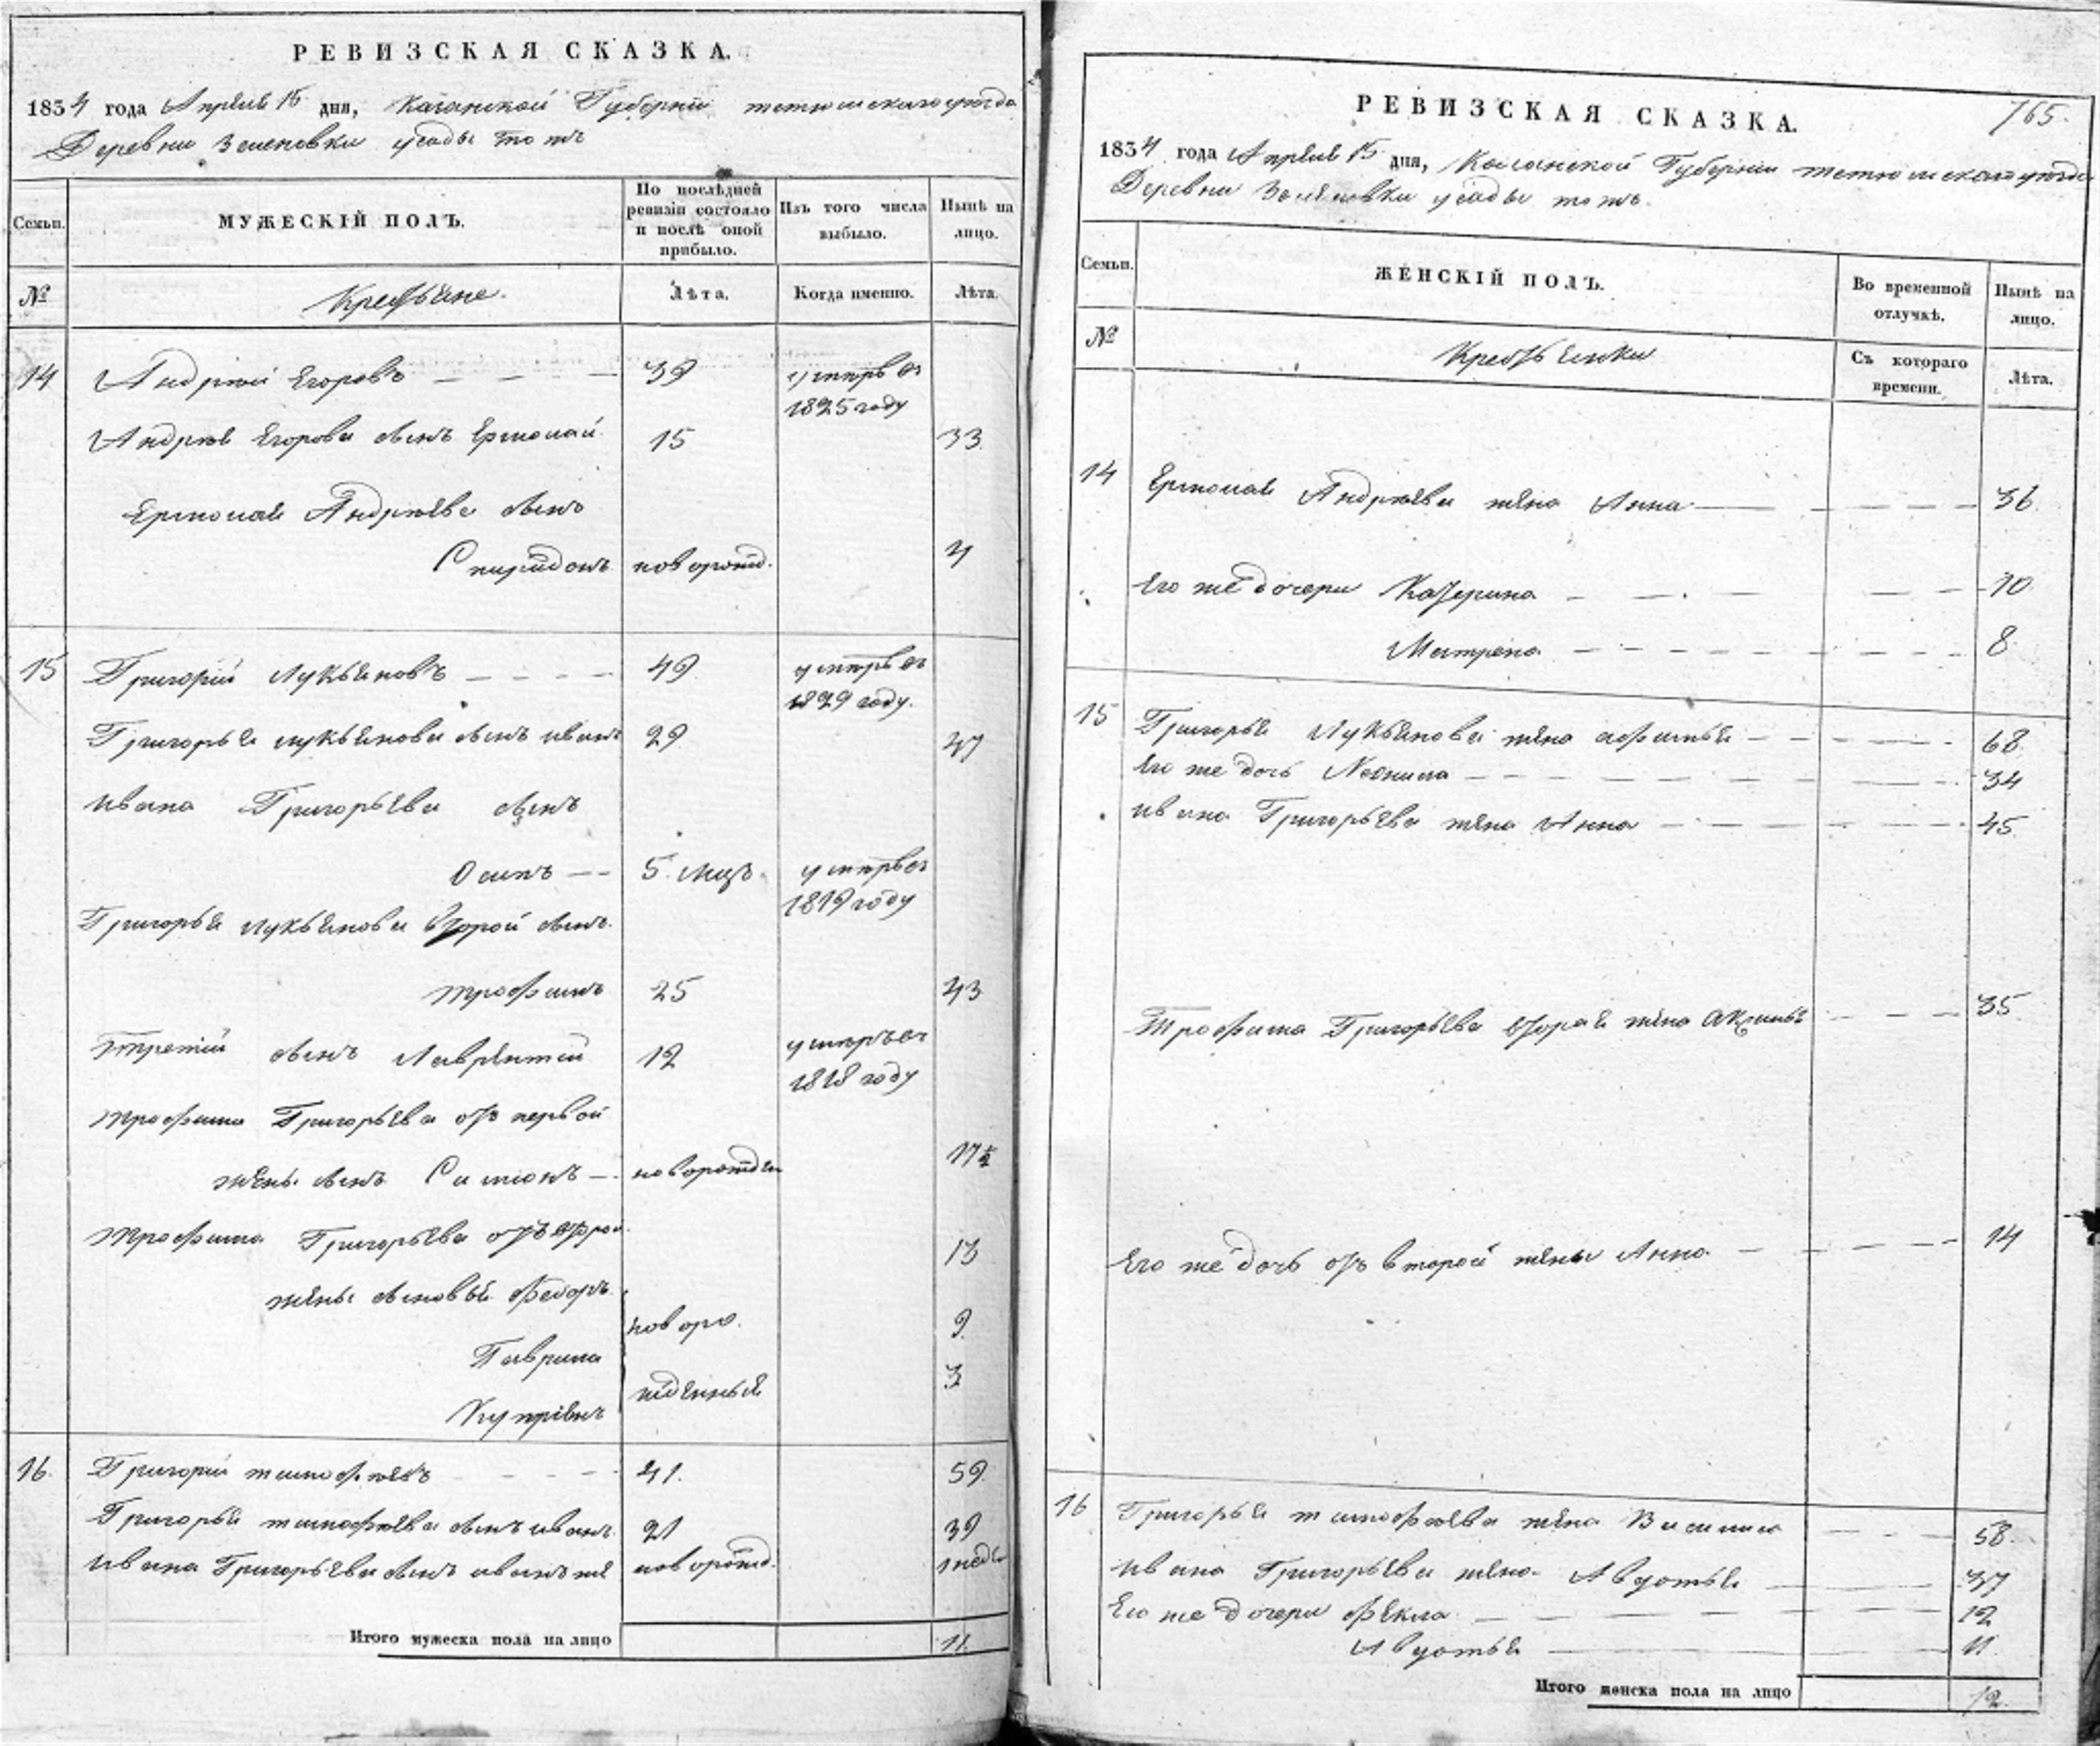 РЕВИЗСКАЯ СКАЗКА.
1834 года Апреля 15 дня, Казанской Губернии тетюшскаго уезда
Деревни усады тожъ
Семьи.
МУЖЕСКІЙ ПОЛЪ.
По послѣдней ревизіи состояло и послѣ оной прибыло.
Изъ того числа выбыло.
Нынѣ на лицо.
№
Крестьяне.
Лѣта.
Когда именно.
Лѣта.
14 Андрей Егоровъ 39 умерь въ 1825 году
Андрея Егорова сынъ Ермолай 15 33
Ермолая Андреева сынъ
Спиридонъ новорожд. 4
15 Григорій Лукьяновъ 49 умерь въ 1829 году.
Григорья лукьянова сынъ иванъ 29 47
ивана Григорьева сынъ
Осипъ 5 мцъ. умерь въ 1819 году
Григорья лукьянова второй сынъ
трофимъ 25 43
Третій сынъ Лаврентій 12 умеръ въ 1818 году
трофима Григорьева отъ первой
жены сынъ Симіонъ новорожден 17½
трофима Григорьева отъ втрой
жены сыновья федоръ 13
Гаврила новоро 9
Купріянъ жденныя 3
16. Григорій тимофеевъ 41. 59
Григорья тимофеева сынъ иванъ 21 39
ивана Григорьева сынъ иванъ же новорожд. 1 неде
Итого мужеска пола на лицо 11
765.
РЕВИЗСКАЯ СКАЗКА.
1834 года Апреля 15 дня, Казанской Губерніи тетюшскаго уезда
Деревни усады тожъ.
Семьи.
ЖЕНСКІЙ ПОЛЪ.
Во временной отлучкѣ.
Нынѣ на лицо.
№
Крестьянки
Съ котораго времени.
Лѣта.
14 Ермолая Андреева жена Анна 36
Его же дочери Катерина 10
Матрена 8
15 Григорья Лукьянова жена афимья 68
Его же дочь Неонила 34
ивана Григорьева жена Анна 45
Трофима Григорьева вторая жена Аксинья 35
Его же дочь отъ второй жены Анна 14
16 Григорья тимофеева жена Василиса 58
ивана Григорьева жена Авдотья 37
Его же дочери фекла 12
Авдотья 11
Итого женска пола на лицо 12